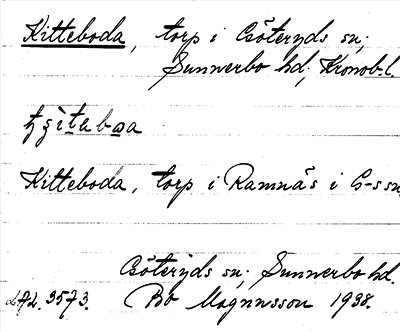 Kitteboda, torp i Göteryds sn;
Sunnerbo hd, Kronob. l.
Kitteboda, torp i Ramnäs i G-s sn,
Göteryds sn; Sunnerbo hd.
3573. Bo Magnusson 1938.